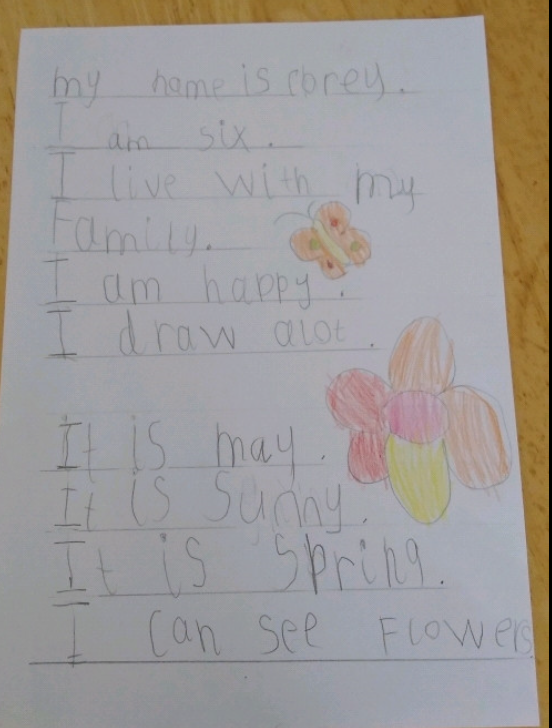 my name is corey.
I am six.
I live with my
Family.
I am happy.
I draw alot.
It is may.
It is Sunny.
It is Spring.
I can see Flowers